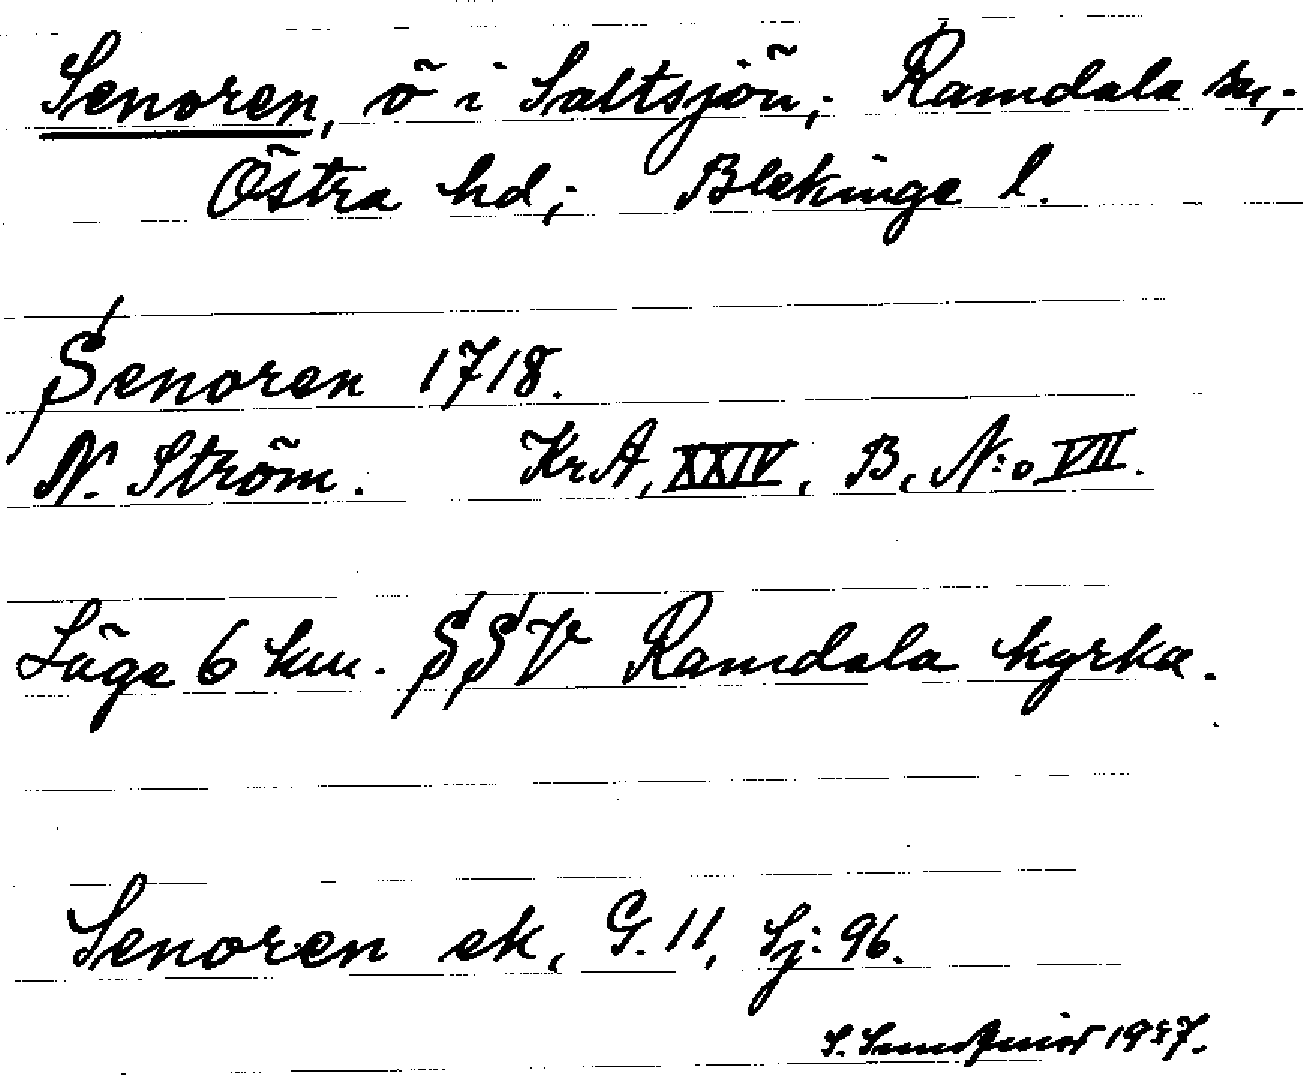 Senoren, ö i Saltsjön; Ramdala sn;
Östra hd; Blekinge l.
Senoren 1718.
N. Ström. KrA, XXIV, B, N:o VII.
Läge 6 km. SSV Ramdala kyrka.
Senoren ek, G. 11, Sj: 96.
S. 1937.